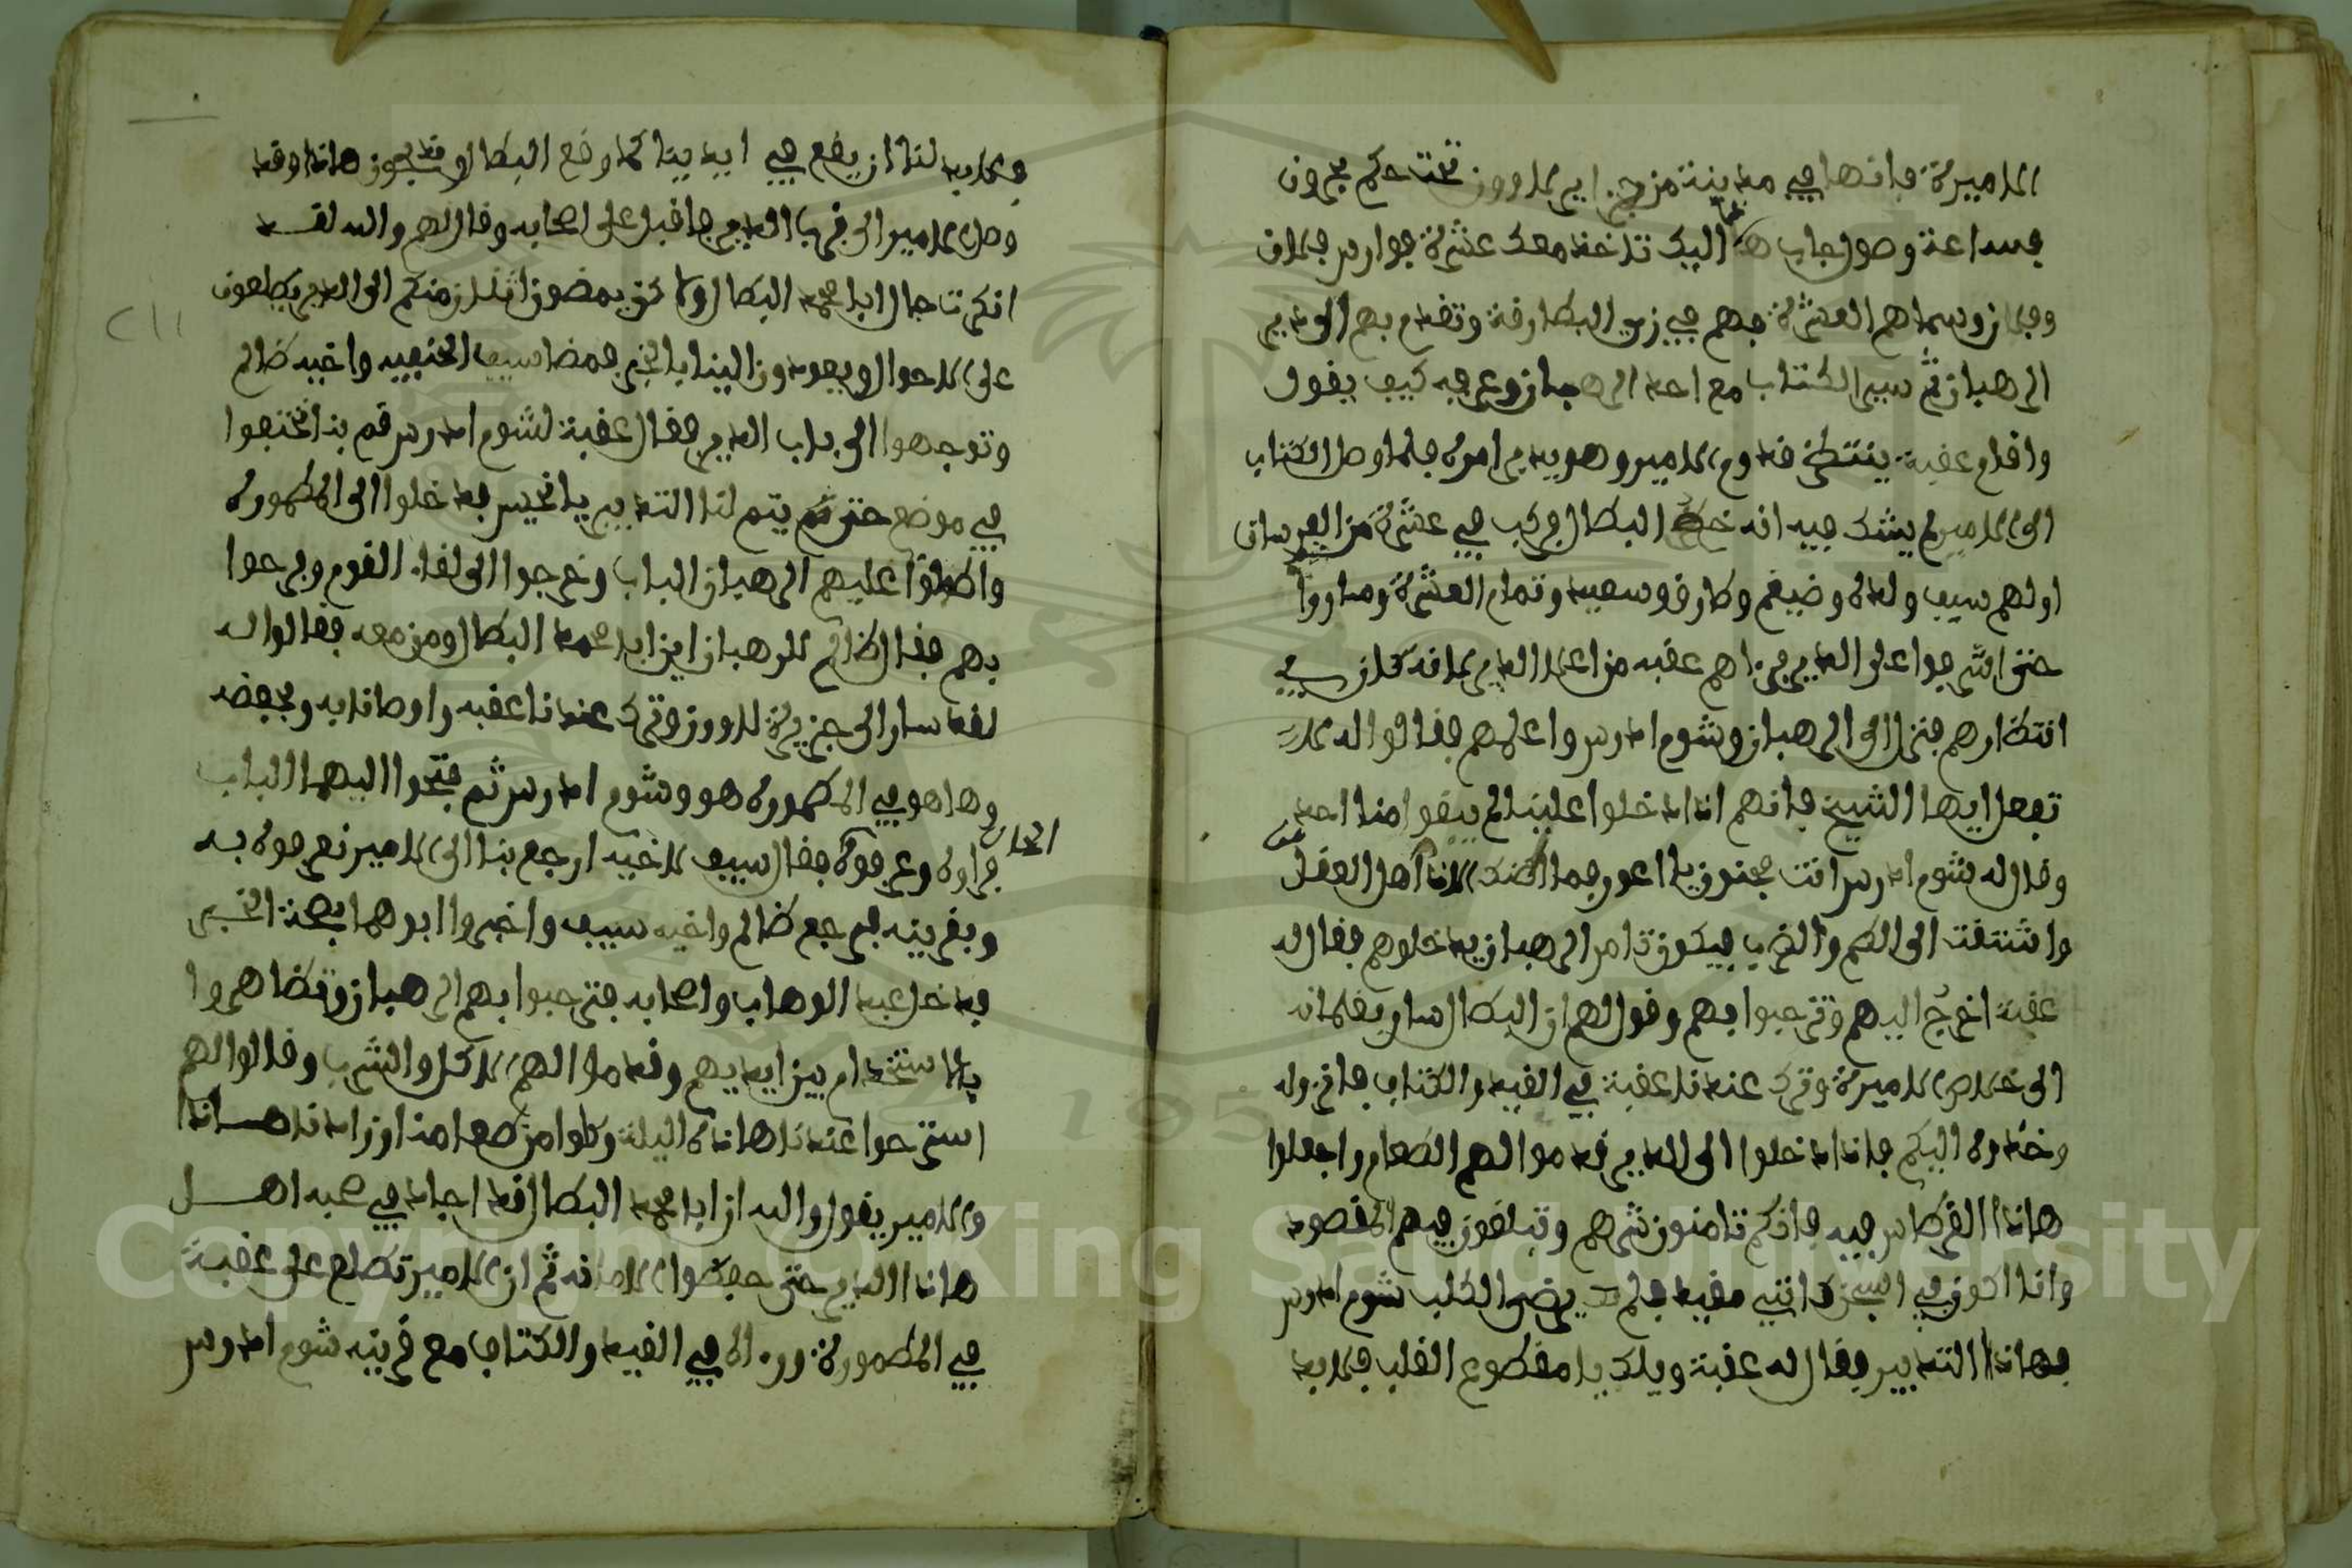 الاميرة فانها في مدينة من جزاير الاروز تحت حكم بحرون
فساعة وصول جاب هذا اليك تاخذ معك عشرة فوارس فلان
وفلان وسماهم العشرة فهم في زي البطارقة وتقدم بهم الى دير
الرهبان ثم سير الكتاب مع احد الرهبان وعرفه كيف يقول
واقام عقبة ينتظر قدوم الامير وهو يدبر امره فلما وصل الكتاب
الى الامير لم يشك فيه انه خط البطال فركب في عشرة من الفرسان
اولهم سيف ولده وضيغم وطارق وسعيد وتمام العشرة وساروا
حتى اشرفوا على الدير فراهم عقبه من اعلا الدير لانه كان في
انتظارهم فنزل الى الرهبان وشوم ادرس واعلمهم فقالوا له
تفعل ايها الشيخ فانهم اذا دخلوا علينا لم يبقوا منا احد
وقال له شوم ادرس انت مجنون يا اعور فما اظنك الا ناقص العقل
واشتقت الى الكم والضرب فيكون تامر الرهبان يدخلوهم فقال له
عقبة اخرج اليهم وترحبوا بهم وقول لهم ان البطال سار بغلمانه
الى خلاص الاميرة وترك عندنا عقبة في القيد والكتاب فانزلوه
وخذوه اليكم فاذا دخلوا الى الدير قدموا لهم الطعام واجعلوا
هاذا القرطاس فيه فانكم تامنون شرهم وتبلغون فيهم المقصود
وانا اكون في السجن كانني مقيد فلم يرضى الكلب شوم ادرس
بهاذا التدبير فقال له عقبة ويلك يا مقطوع القلب فلابد
ولابد لنا ان يقع في ايدينا كما وقع البطال وقد يجوز هاذا وقد
وصل الامير الى قرب الدير فاقبل على اصحابه وقال لهم والله لقد
انكرت حال ابا محمد البطال ولاكن يمضون اثنان منكم الى الدير يطلعون
على الاحوال ويعودون الينا بالخبر فمضا سيف الحنيفيه واخيه ظالم
وتوجهوا الى باب الدير فقال عقبة لشوم ادرس قم بنا نختفوا
في موضع حتى يتم لنا التدبير يا نحيس فدخلوا الى المطمورة
واطلقا عليهم الرهبان الباب وخرجوا الى لقاء القوم وفرحوا
بهم فقال ظالم للرهبان اين ابا محمد البطال ومن معه فقالوا له
لقد سار الى جزيرة الاروز وترك عندنا عقبه واوصانا به وبحفضه
وها هو في المطمورة هو وشوم ادرس ثم فتحوا اليهما الباب
فراوه وعرفوه فقال سيف لاخيه ارجع بنا الى الامير نعرفوه به
وبقرينه فرجع ظالم واخيه سيف واخبروا ابوهما بصحة الخبر
فدخل عبد الوهاب واصحابه فترحبوا بهم الرهبان وتظاهروا
بالاستخدام بين ايديهم وقدموا لهم الاكل والشرب وقالوا لهم
استرحوا عندنا هاذه اليلة وكلوا من طعامنا وزادنا هساذا
والامير يقول والله ان ابا محمد البطال قد اجاد في صحبه اهل
هاذا الدير حتى حفظوا الامانه ثم ان الامير تطلع على عقبة
في المطمورة وراه في القيد والكتاب مع قرينه شوم ادرس